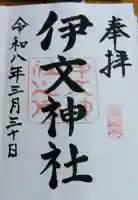 奉拝
伊文神社
令和八年三月三十日